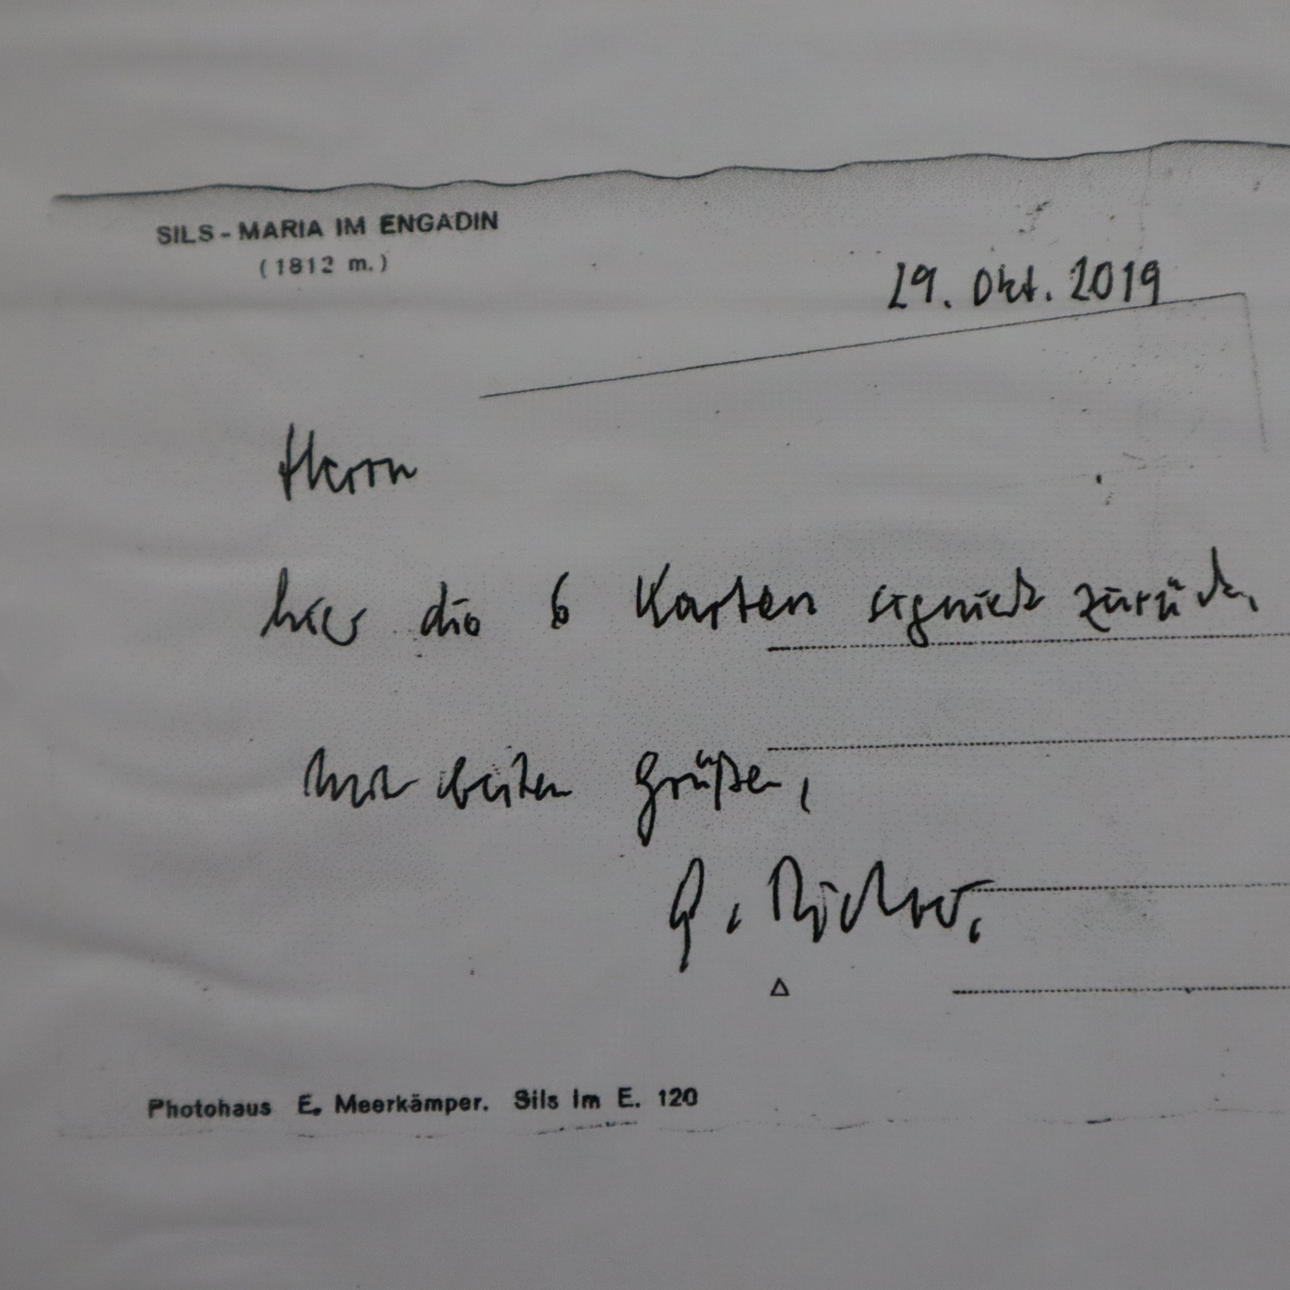 SILS - MARIA IM ENGADIN
(1812 m.)
29. Okt. 2019
Herrn
hier die 6 Karten signiert zurück,
Mit besten Grüßen,
G. Richter.
Photohaus E. Meerkämper. Sils im E. 120